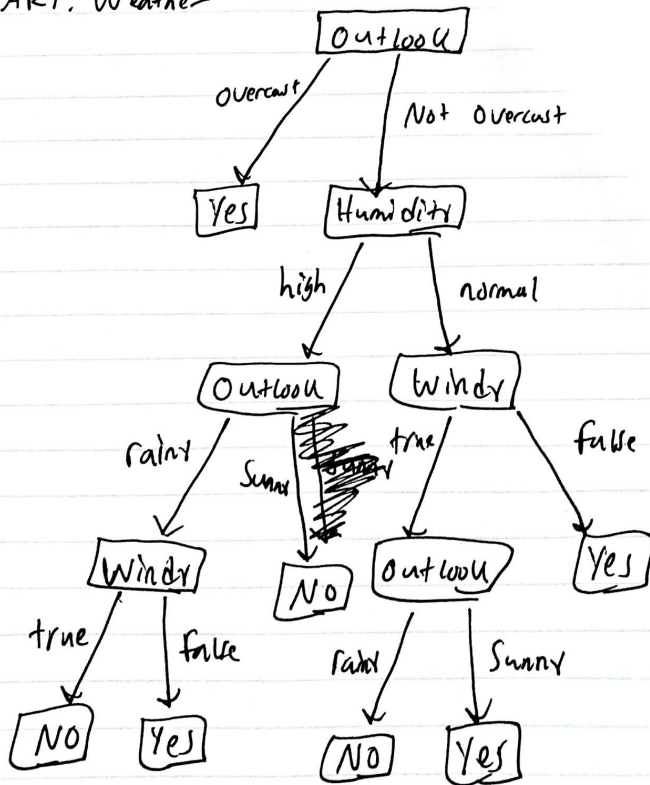 CART: Weather
Outlook
Overcast
Not Overcast
Yes
Humidity
high
normal
Outlook
Windy
rainy
Sunny
true
false
Windy
No
Outlook
Yes
true
false
rainy
Sunny
No
Yes
No
Yes